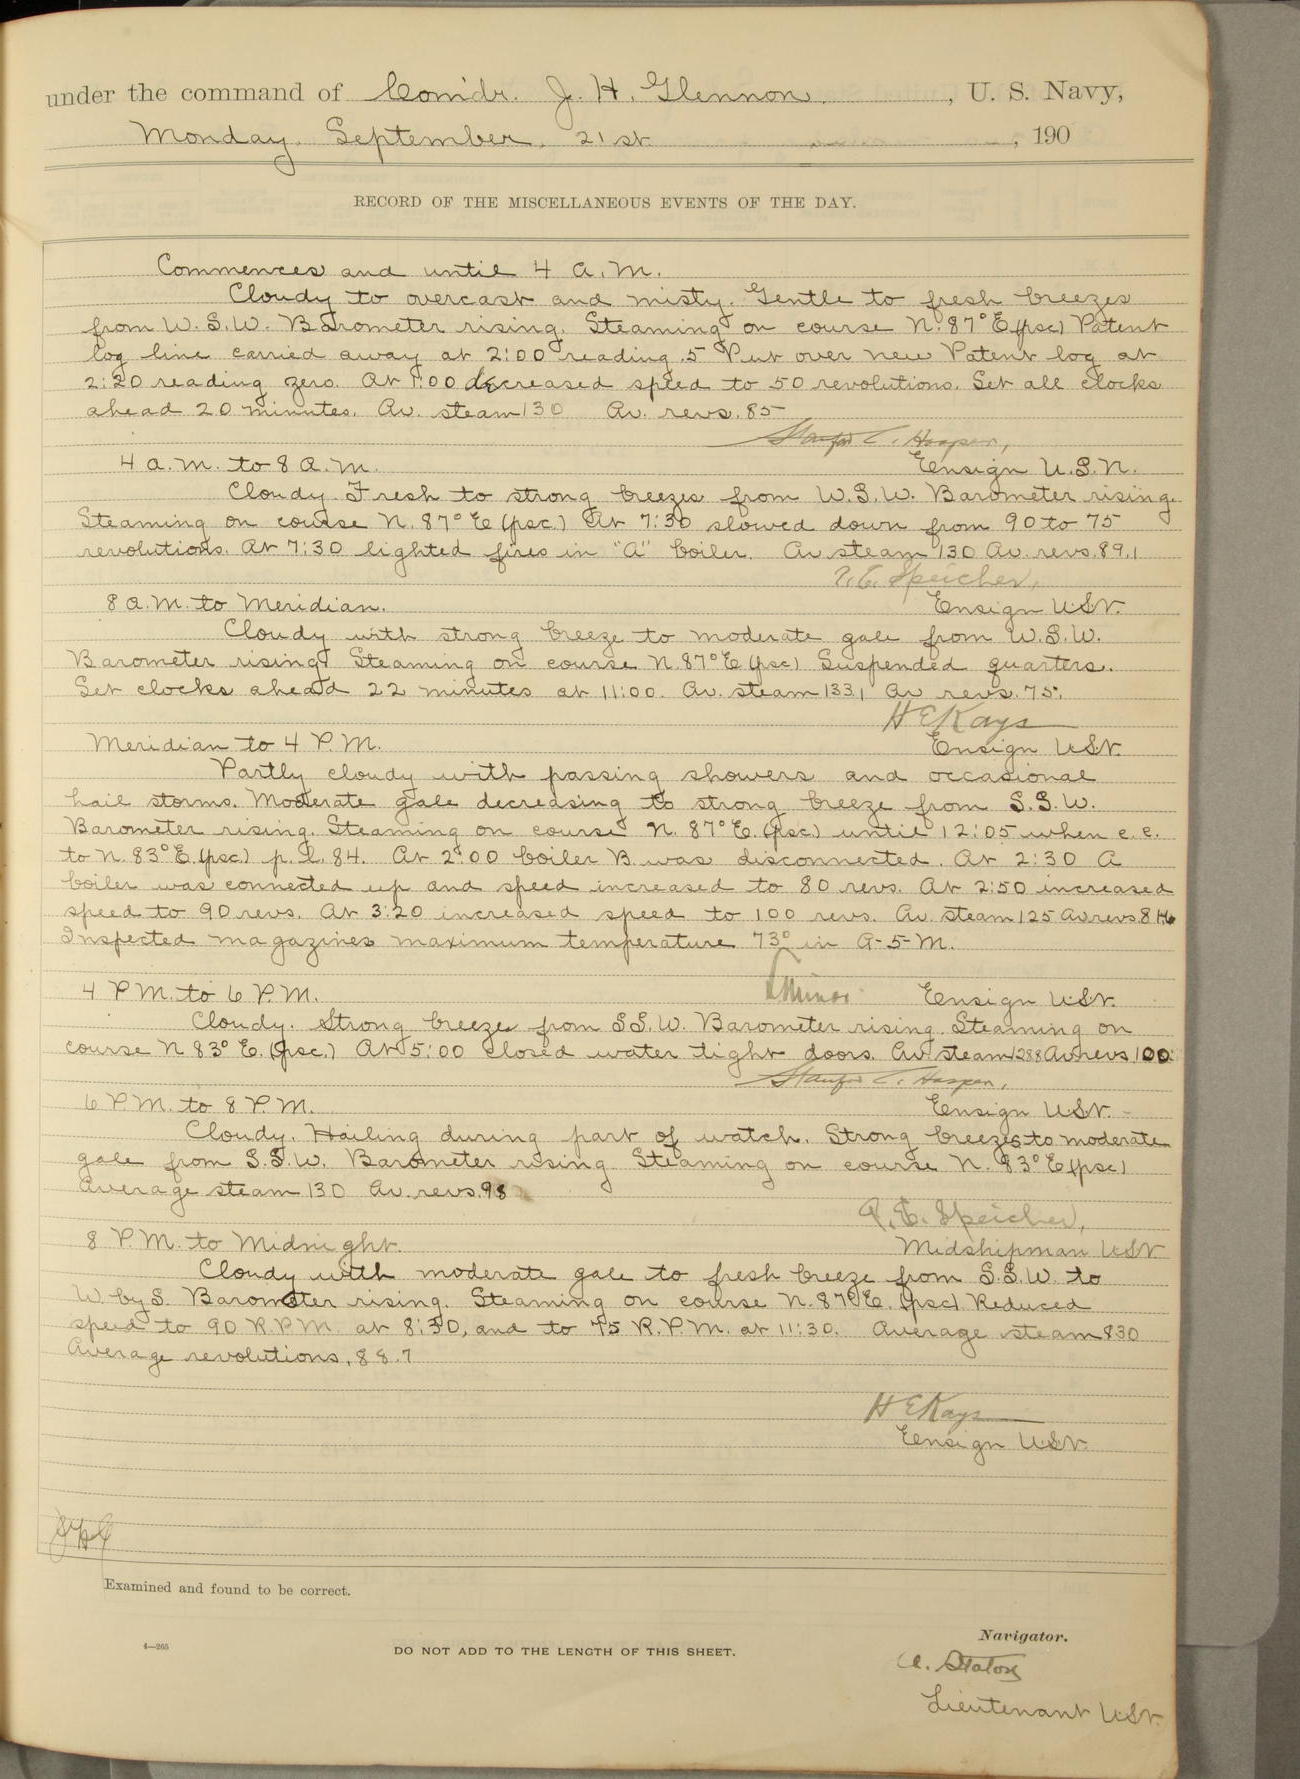 under the command of Com'dr. J. H. Glennon, U. S. Navy,
Monday, September, 21st, 190
RECORD OF THE MISCELLANEOUS EVENTS OF THE DAY.
Commences and until 4 A.M.
Cloudy to overcast and misty. Gentle to fresh breezes
from W.S.W. Barometer rising. Steaming on course N. 87° E (psc) Patent
log line carried away at 2:00 reading .5 Put over new Patent log at
2:20 reading zero. At 1:00 decreased speed to 50 revolutions. Set all clocks
ahead 20 minutes. Av. steam 130 Av. revs. 85
Stanford C. Hooper,
4 a.m. to 8 A.M. Ensign U.S.N.
Cloudy. Fresh to strong breezes from W.S.W. Barometer rising.
Steaming on course N. 87° E (psc.) At 7:30 slowed down from 90 to 75
revolutions. At 7:30 lighted fires in "A" boiler. Av steam 130 Av. revs. 89.1
R. E. Speicher,
8 a.m. to Meridian. Ensign USN.
Cloudy with strong breeze to moderate gale from W.S.W.
Barometer rising. Steaming on course N. 87° E (psc) Suspended quarters.
Set clocks ahead 22 minutes at 11:00. Av. steam 133.1 Av revs. 75.
H E Kays
Meridian to 4 P.M. Ensign USN.
Partly cloudy with passing showers and occasional
hail storms. Moderate gale decreasing to strong breeze from S.S.W.
Barometer rising. Steaming on course N. 87° E. (psc) until 12:05 when c. c.
to N. 83° E. (psc) p. l. 84. At 2:00 boiler B was disconnected. At 2:30 A
boiler was connected up and speed increased to 80 revs. At 2:50 increased
speed to 90 revs. At 3:20 increased speed to 100 revs. Av. steam 125 Av revs.
Inspected magazines maximum temperature 73° in A-5-M.
4 P.M. to 6 P.M. Ensign USN.
Cloudy. Strong breeze from S.S.W. Barometer rising. Steaming on
course N 83° E. (psc.) At 5:00 closed water tight doors. Av. steam 128.8 Av. revs. 100.
Stanford C. Hooper,
6 P.M. to 8 P.M. Ensign USN.
Cloudy. Hailing during part of watch. Strong breezes to moderate
gale from S.S.W. Barometer rising. Steaming on course N. 83° E (psc)
Average steam 130 Av. revs. 98
R. E. Speicher,
8 P.M. to Midnight. Midshipman USN
Cloudy with moderate gale to fresh breeze from S.S.W. to
W by S. Barometer rising. Steaming on course N. 87° E. (psc). Reduced
speed to 90 R.P.M. at 8:30, and to 75 R.P.M. at 11:30. Average steam 130
Average revolutions, 88.7
H E Kays
Ensign USN.
Examined and found to be correct.
Navigator.
4—265 DO NOT ADD TO THE LENGTH OF THIS SHEET.
A. Staton
Lieutenant USN.